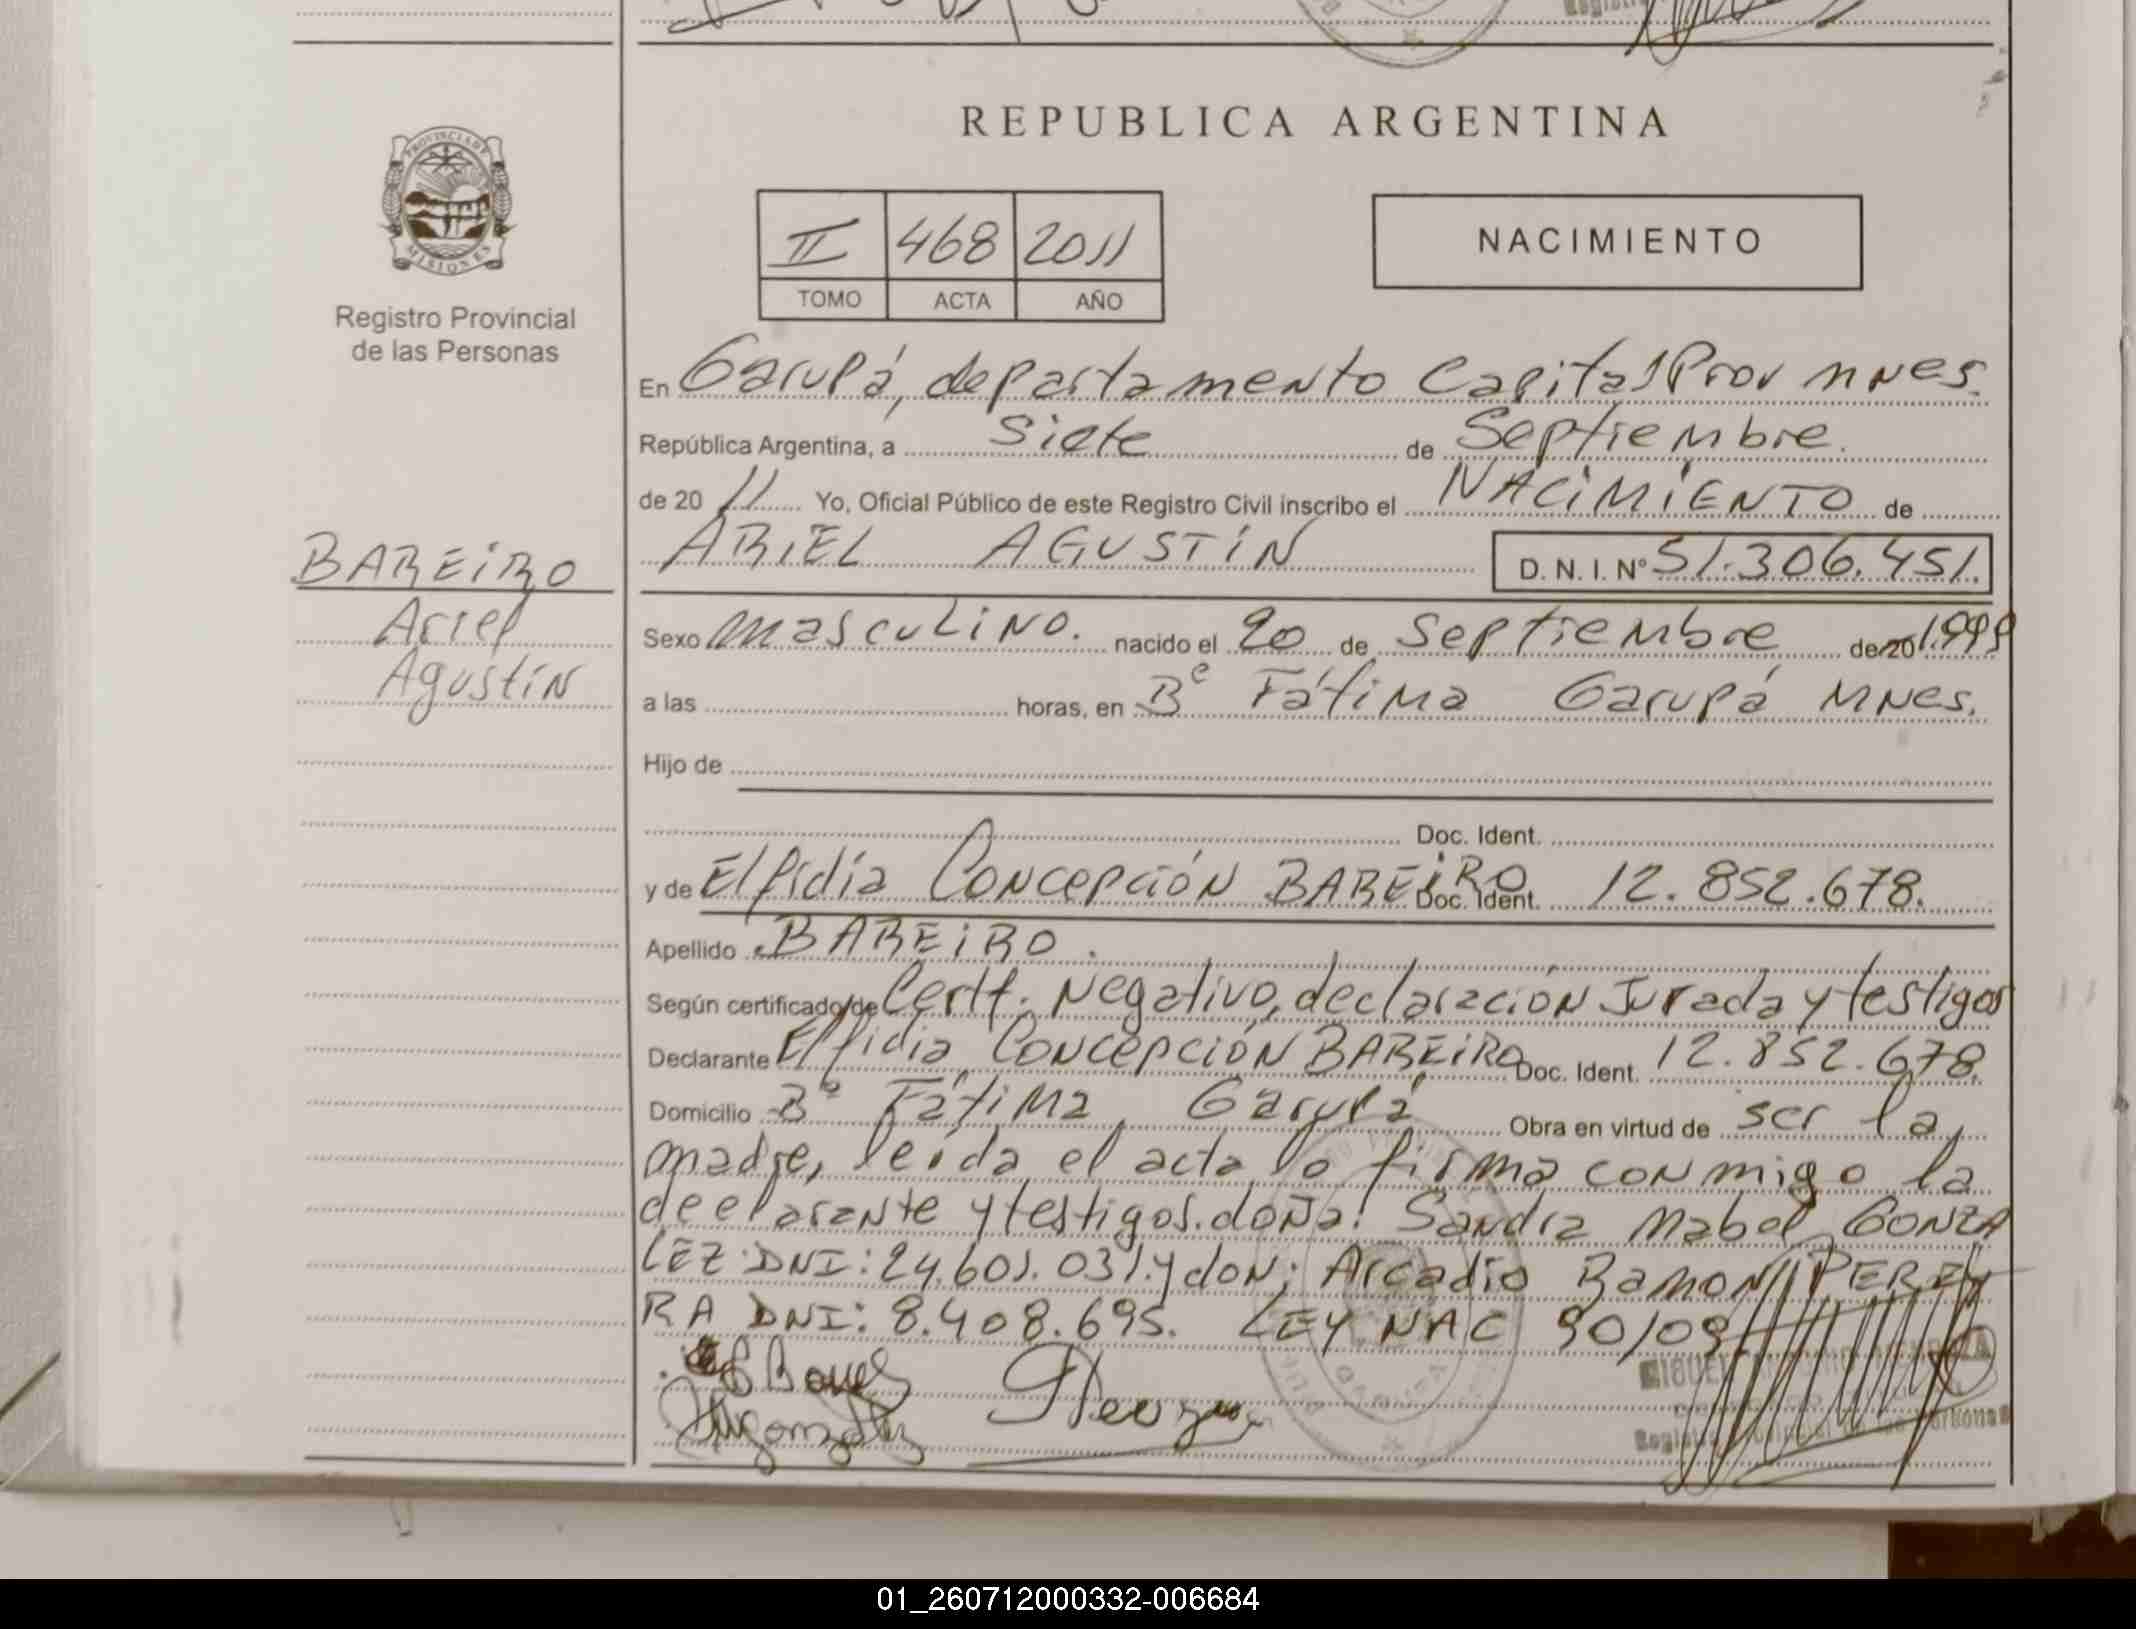 REPUBLICA ARGENTINA
PROVINCIA DE
MISIONES
Registro Provincial
de las Personas
II 468 2011
TOMO ACTA AÑO
NACIMIENTO
En Garupá, departamento Capital Prov mnes.
República Argentina, a siete de Septiembre.
de 20 11 Yo, Oficial Público de este Registro Civil inscribo el NACIMIENTO de
BAREIRO
Ariel
Agustín
ARIEL AGUSTIN D. N. I. Nº 51.306.451.
Sexo masculino. nacido el 20 de Septiembre de 20 1.999
a las horas, en Bº Fátima Garupá MNes.
Hijo de
Doc. Ident.
y de Elfidia Concepción BAREIRO Doc. Ident. 12.852.678.
Apellido BAREIRO.
Según certificado de Certf. Negativo, declaración Jurada y testigos
Declarante Elfidia Concepción BAREIRO Doc. Ident. 12.852.678
Domicilio Bº Fátima, Garupá Obra en virtud de ser la
madre, leída el acta lo firma conmigo la
declarante y testigos. doña: Sandra Mabel GONZA
LEZ DNI: 24.601.031. y don: Arcadio Ramon PEREY
RA DNI: 8.408.695. LEY NAC 90/09
Registro Provincial de las Personas
01_260712000332-006684